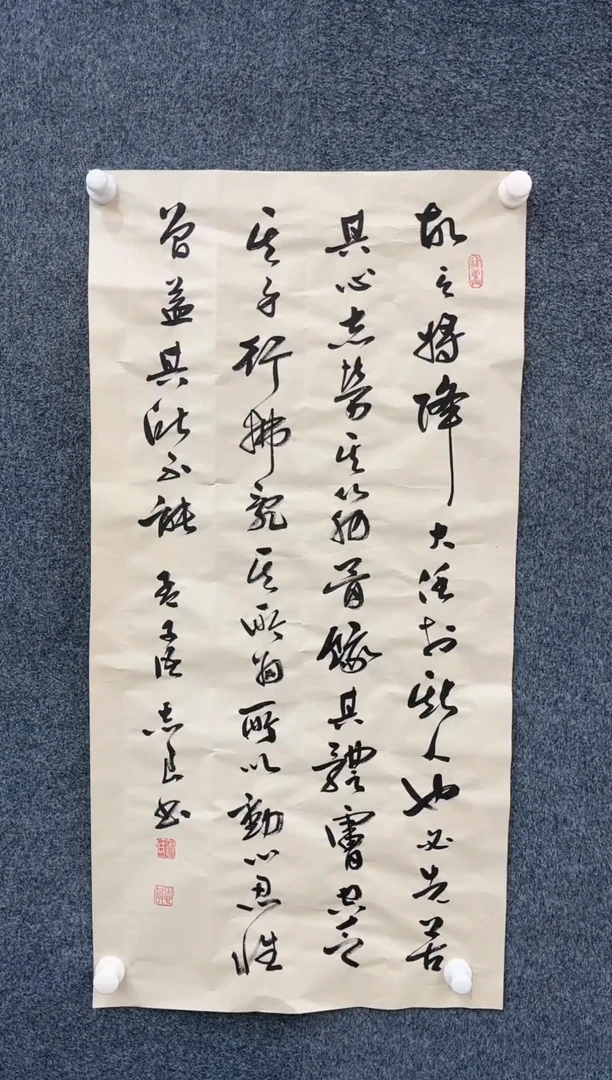 故天將降大任於斯人也必先苦
其心志勞其筋骨餓其體膚空乏
其身行拂亂其所為所以動心忍性
曾益其所不能 孟子語 志良書